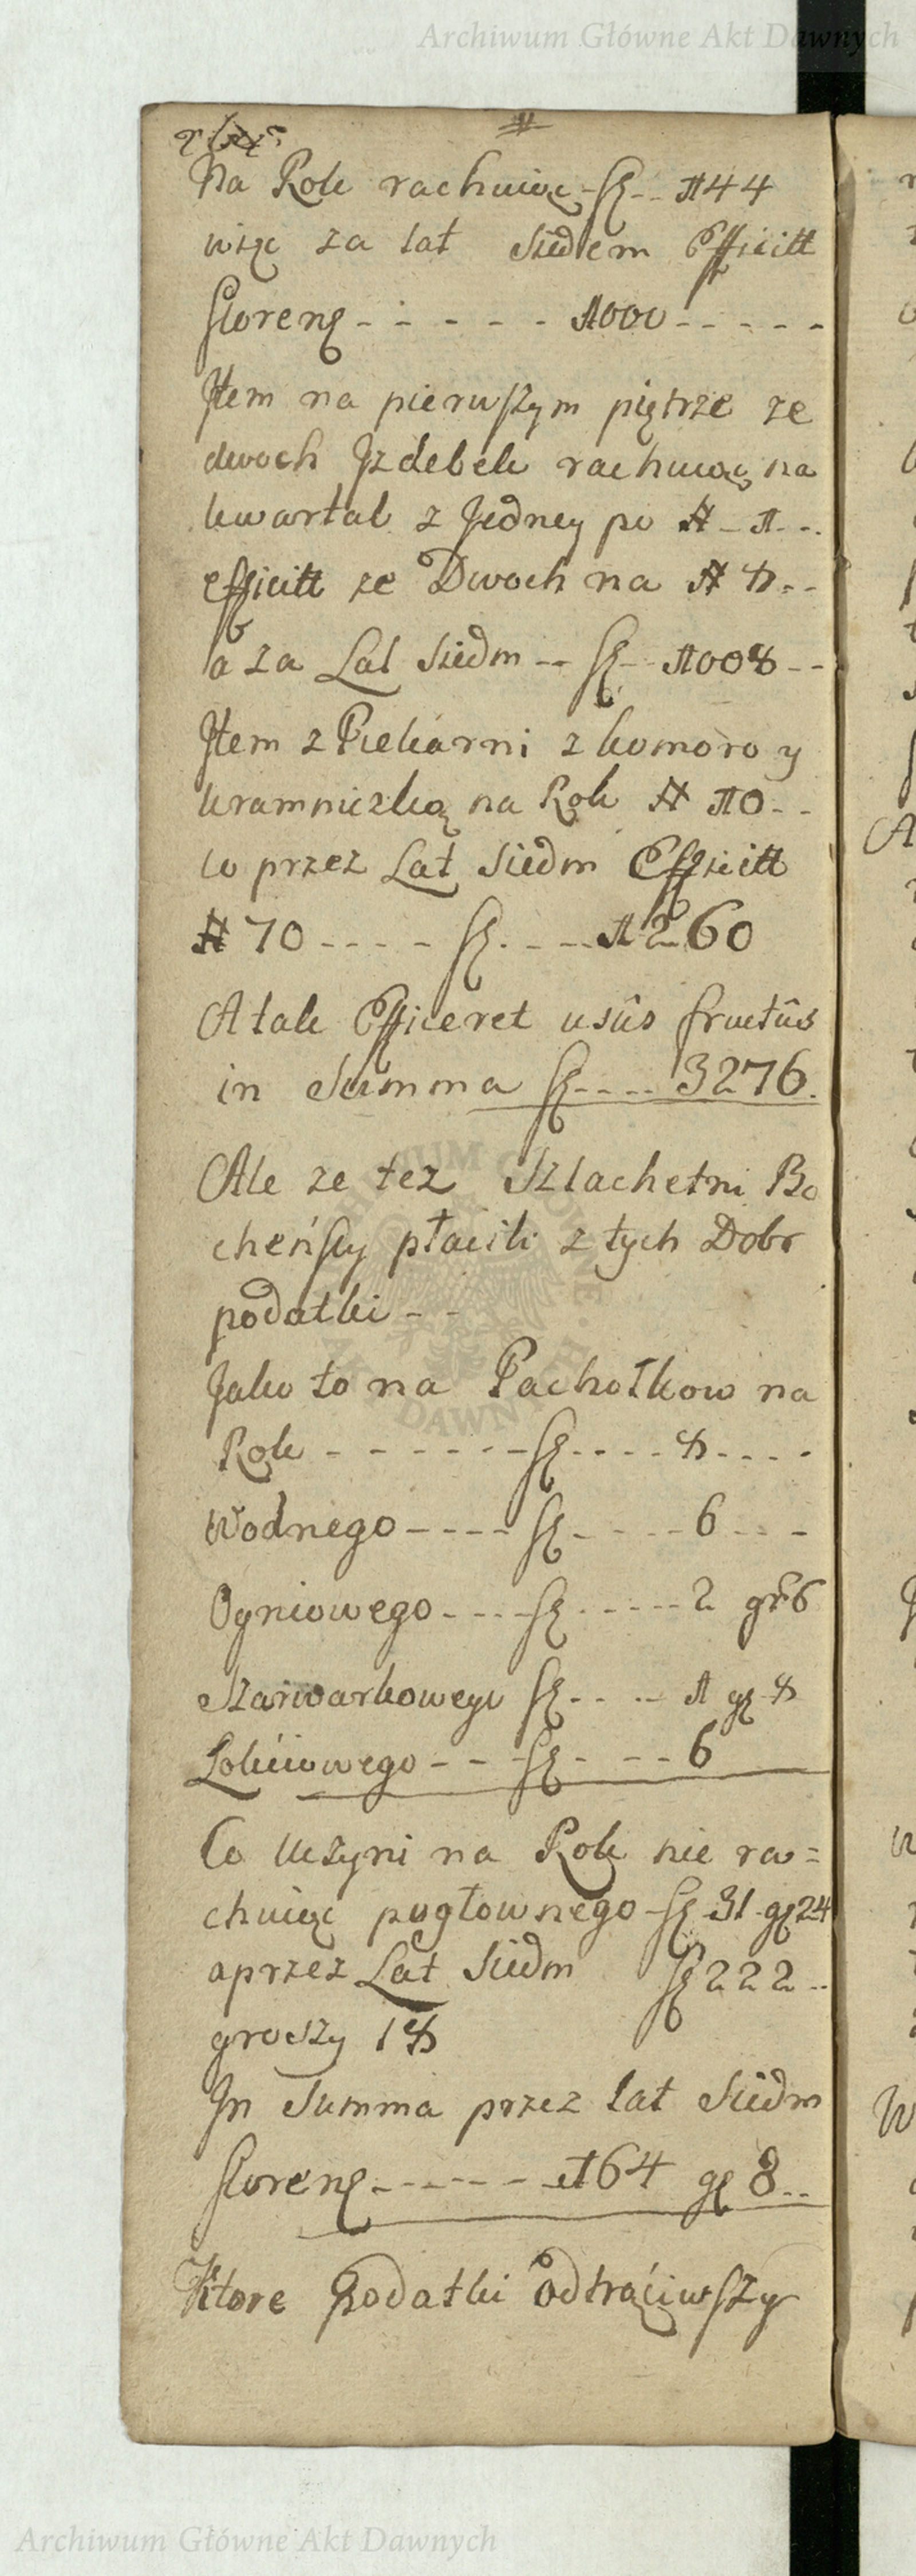 Archiwum Główne Akt Dawnych
Na Rok rachuiąc fl -- 144
więc za lat Siedem Efficitt
florenę - - - - - 1000 - - - - -
Jtem na pierwszym piętrze ze
dwoch Jzdebek rachuiąc na
kwartał z Jedney po # - 1 - -
efficitt ze Dwoch na # 8 - -
a za Lat Siedm -- fl -- 1008 --
Jtem z Piekarni z komoro y
kramniczką na Rok # 10 - -
co przez Lat Siedm Efficitt
# 70 - - - - fl - - - 1260
A tak Efficeret usûs fructûs
in Summa fl - - - - 3276.
Ale ze tez Szlachetni Bo
cheńscy płacili z tych Dobr
podatki - -
Jako to na Pachołkow na
Rok - - - - - - fl - - - - 8 - - - -
Wodnego - - - - fl - - - - 6 - - -
Ogniowego - - - - fl - - - - - 2 gr 6
Szarwarkowego fl - - - - 1 gr 8
Łokciowego - - - fl - - - - 6
Co uczyni na Rok nie ra=
chuiąc pogłownego fl 31 gr 24
a przez Lat Siedm fl 222 --
groszy 18
Jn Summa przez lat Siedm
florenę - - - - - - 164 gr 8 --
Ktore podatki odtrąciwszy
Archiwum Główne Akt Dawnych